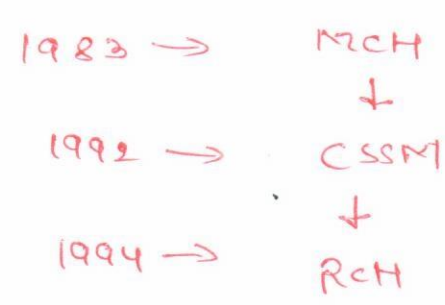 1983 → MCH
↓
1992 → CSSM
↓
1994 → RCH